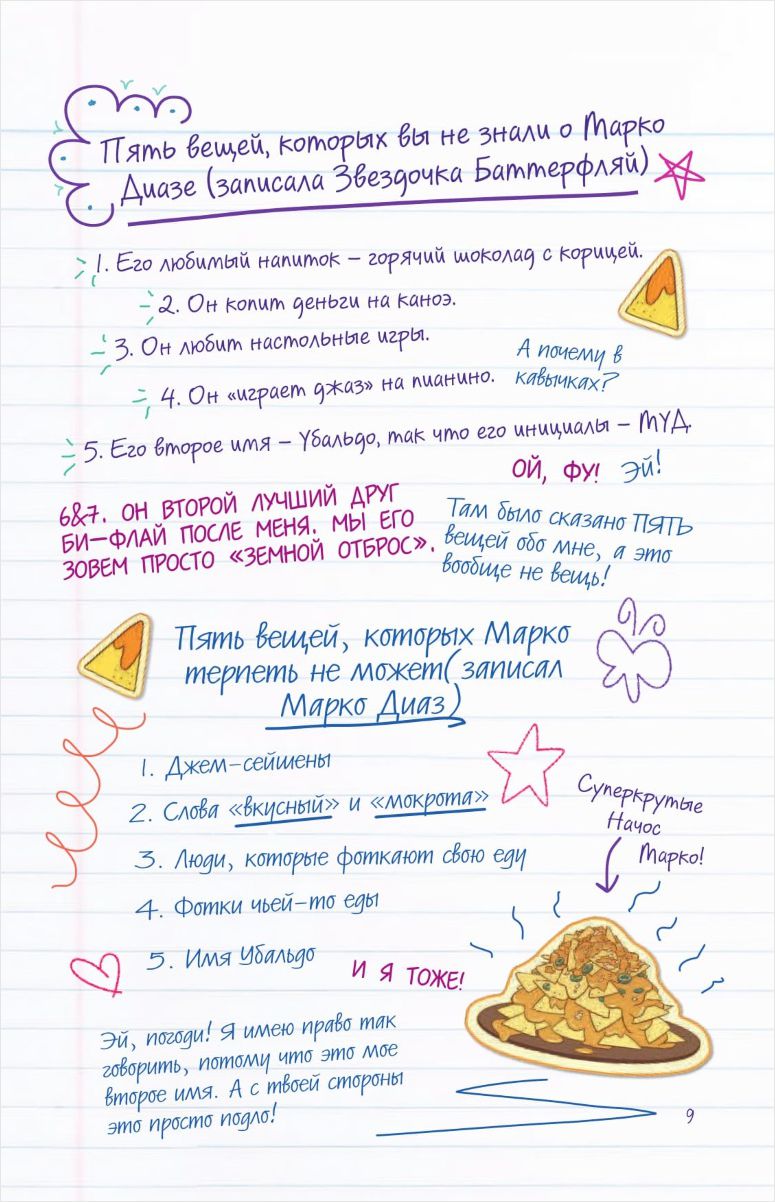 Пять вещей, которых вы не знали о Марко
Диазе (записала Звездочка Баттерфляй)
1. Его любимый напиток – горячий шоколад с корицей.
2. Он копит деньги на каноэ.
3. Он любит настольные игры.
4. Он «играет джаз» на пианино.
А почему в
кавычках?
5. Его второе имя – Убальдо, так что его инициалы – МУД.
ОЙ, ФУ!
Эй!
6&7. ОН ВТОРОЙ ЛУЧШИЙ ДРУГ
БИ-ФЛАЙ ПОСЛЕ МЕНЯ. МЫ ЕГО
ЗОВЕМ ПРОСТО «ЗЕМНОЙ ОТБРОС».
Там было сказано ПЯТЬ
вещей обо мне, а это
вообще не вещь!
Пять вещей, которых Марко
терпеть не может(записал
Марко Диаз)
1. Джем-сейшены
2. Слова «вкусный» и «мокрота»
3. Люди, которые фоткают свою еду
4. Фотки чьей-то еды
5. Имя Убальдо
И Я ТОЖЕ!
Суперкрутые
Начос
Марко!
Эй, погоди! Я имею право так
говорить, потому что это мое
второе имя. А с твоей стороны
это просто подло!
9